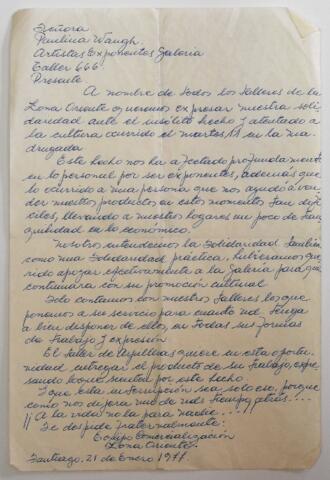 Señora
Paulina Waugh
Artistas Exponentes Galeria
Taller 666
Presente
A nombre de todos los Talleres de la
Zona Oriente queremos expresar nuestra soli
daridad ante el insólito hecho y atentado a
la cultura ocurrido el martes 11 en la ma
drugada
Este hecho nos ha afectado profundamente
en lo personal por ser exponentes, además que
lo ocurrido a una persona que nos ayudó a ven
der nuestros productos en estos momentos tan difi
ciles, llevando a nuestros hogares un poco de tran
quilidad en lo económico.
Nosotros entendemos la Solidaridad también
como una Solidaridad práctica, hubieramos que
rido apoyar efectivamente a la Galeria para que
continuara con su promoción cultural
Solo contamos con nuestros Talleres los que
ponemos a su servicio para cuando ud. tenga
a bien disponer de ellos, en todas sus formas
de trabajo y expresión
El Taller de Arpilleras quiere en esta oportu
nidad entregar el producto de su trabajo, expre
sando lo que sienten por este hecho
Y que esta interrupción sea solo eso, porque
como nos dijera uno de uds tiempo atrás!...
¡¡A la vida no la para nadie...!!!
Se despide fraternalmente:
Equipo Comercialización
Zona Oriente.
Santiago, 21 de Enero 1977.